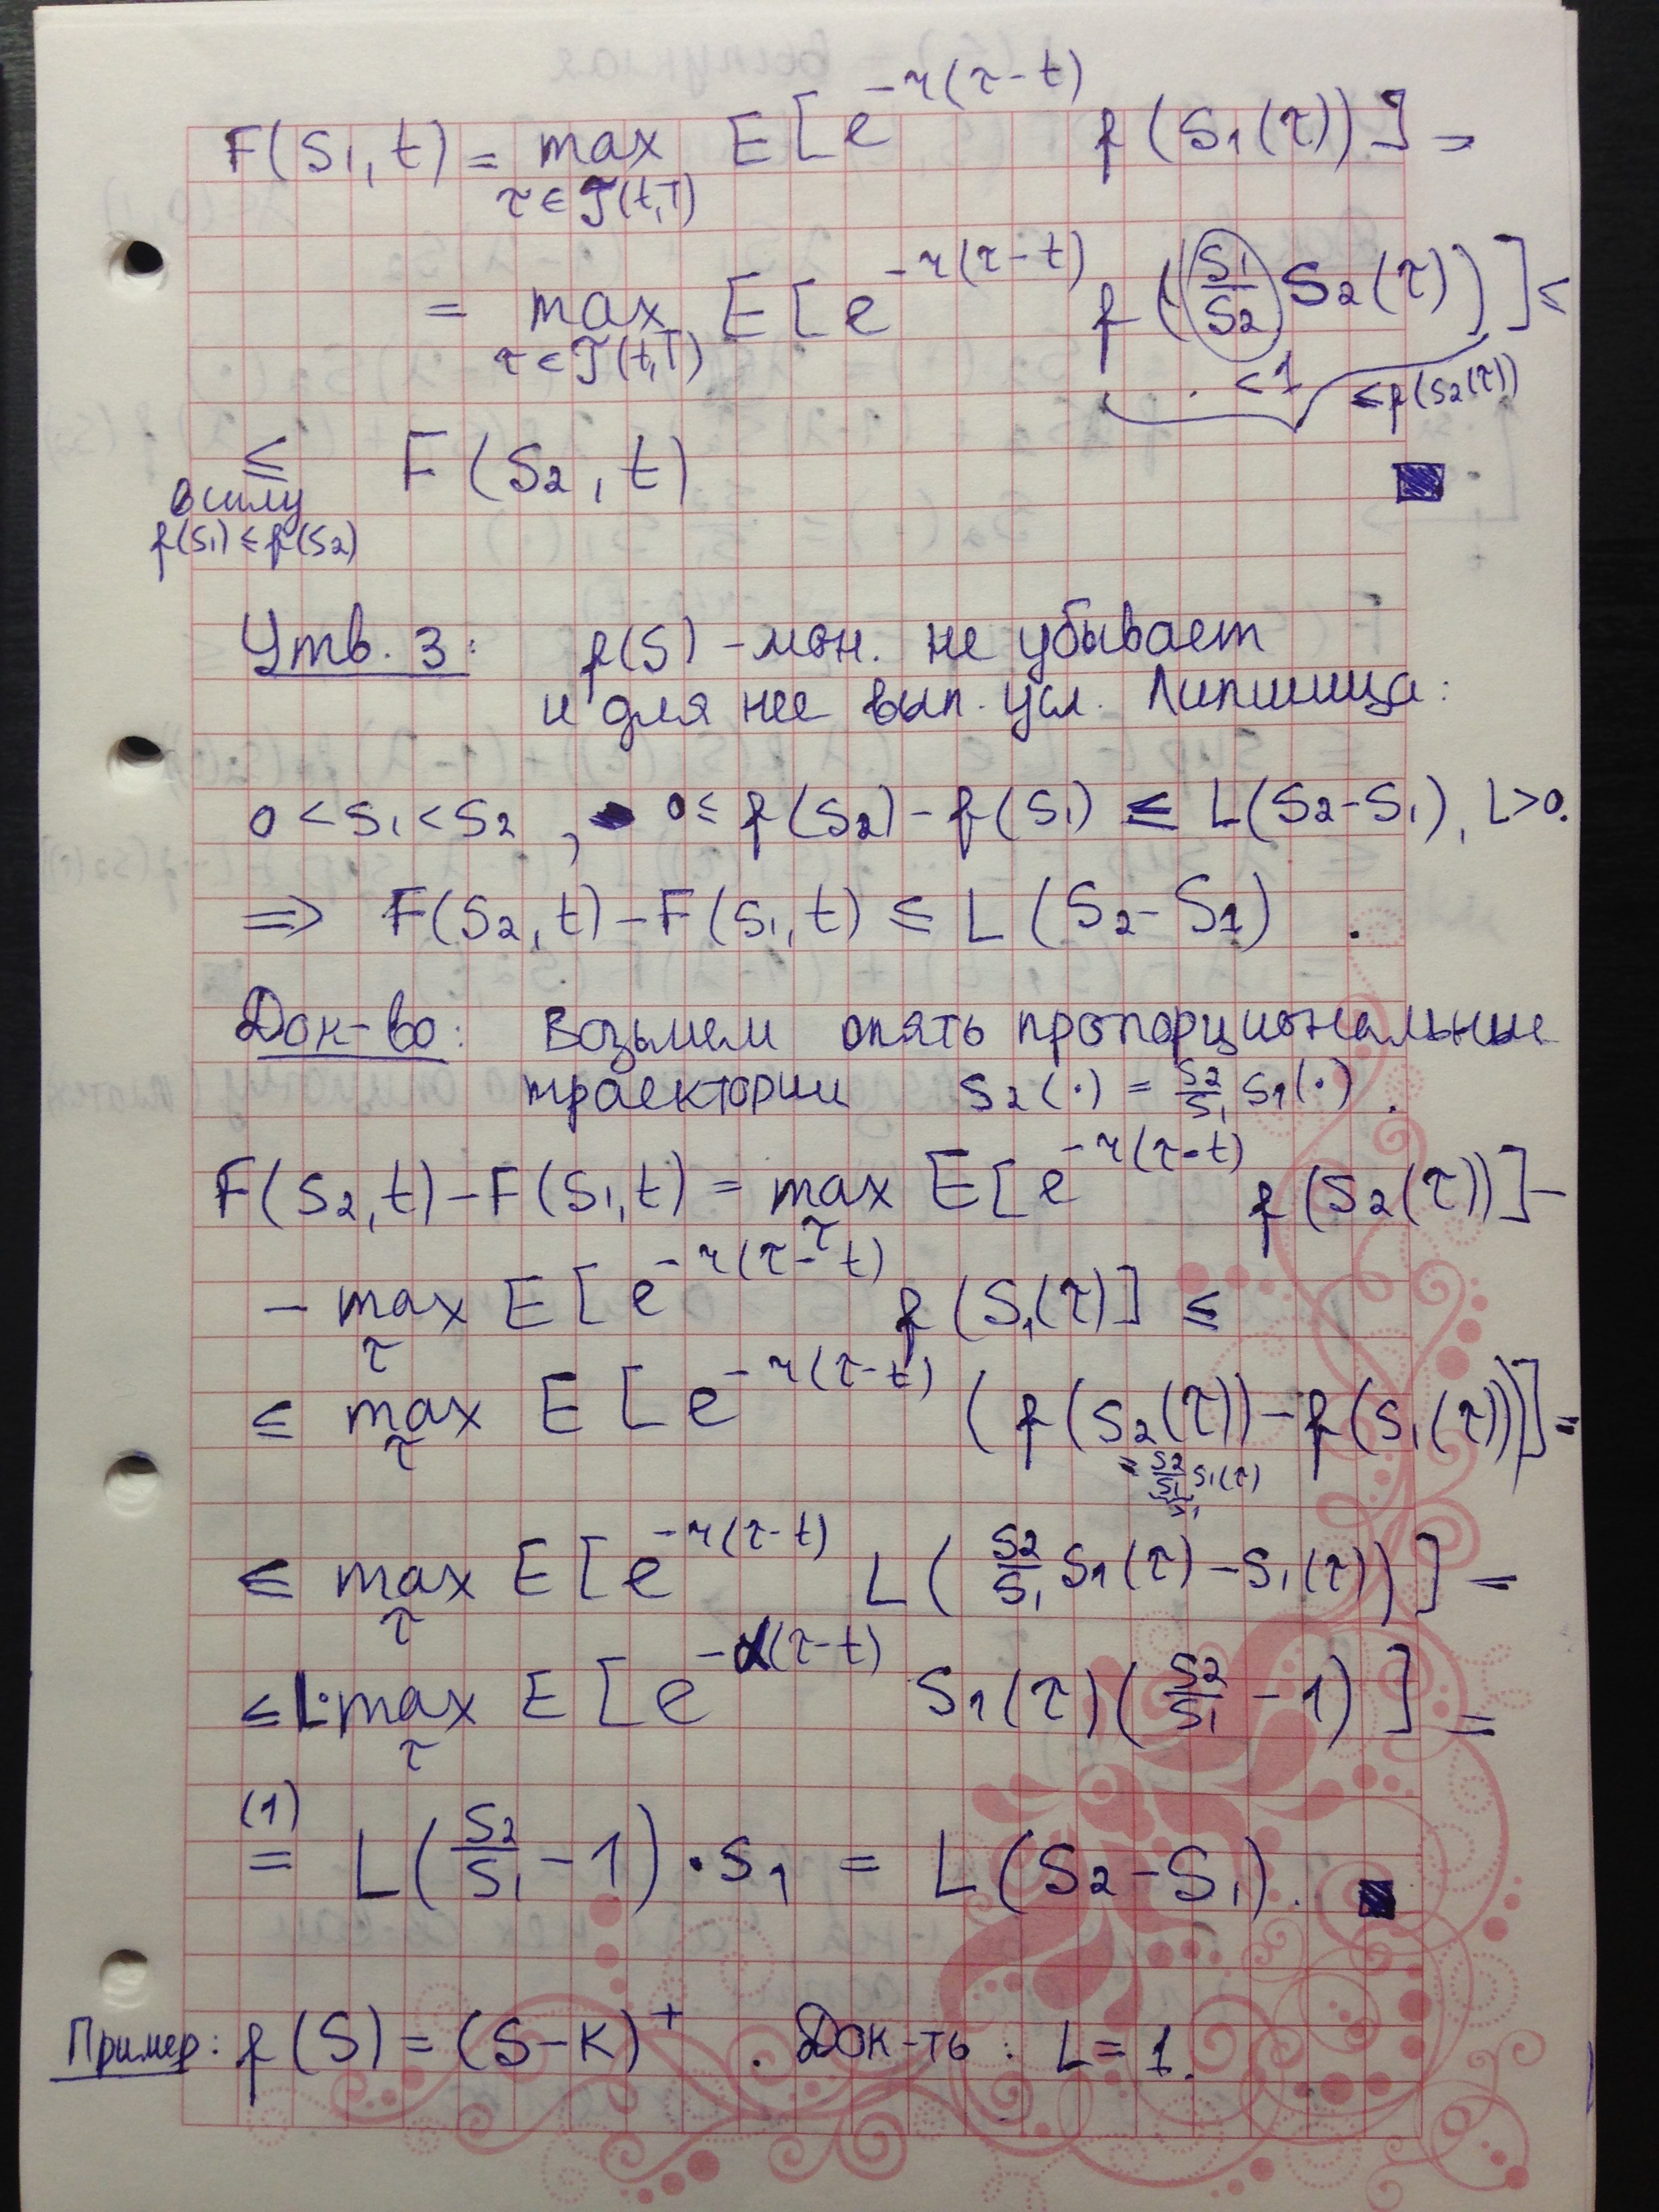 F(S₁,t) = max E[e^{-r(τ-t)} f(S₁(τ))] =
τ∈𝒯(t,T)
= max E[e^{-r(τ-t)} f(S₁/S₂ S₂(τ))] ≤
τ∈𝒯(t,T) <1 ≤f(S₂(τ))
≤ F(S₂,t)
В силу
f(S₁)≤f(S₂)
Утв. 3: f(S) - мон. не убывает
и для нее вып. усл. Липшица:
0 < S₁ < S₂ , 0 ≤ f(S₂) - f(S₁) ≤ L(S₂-S₁), L>0.
⇒ F(S₂,t) - F(S₁,t) ≤ L(S₂-S₁) .
Док-во: Возьмем опять пропорциональные
траектории S₂(·) = S₂/S₁ S₁(·) .
F(S₂,t) - F(S₁,t) = max E[e^{-r(τ-t)} f(S₂(τ))] -
τ
- max E[e^{-r(τ-t)} f(S₁(τ)] ≤
τ
≤ max E[e^{-r(τ-t)} (f(S₂(τ)) - f(S₁(τ)))] =
τ = S₂/S₁ S₁(τ)
S₁
≤ max E[e^{-r(τ-t)} L(S₂/S₁ S₁(τ) - S₁(τ))] =
τ
≤ L·max E[e^{-α(τ-t)} S₁(τ)(S₂/S₁ - 1)] =
τ
(1)
= L(S₂/S₁ - 1)·S₁ = L(S₂-S₁).
Пример: f(S) = (S-K)⁺ . Док-ть: L=1.